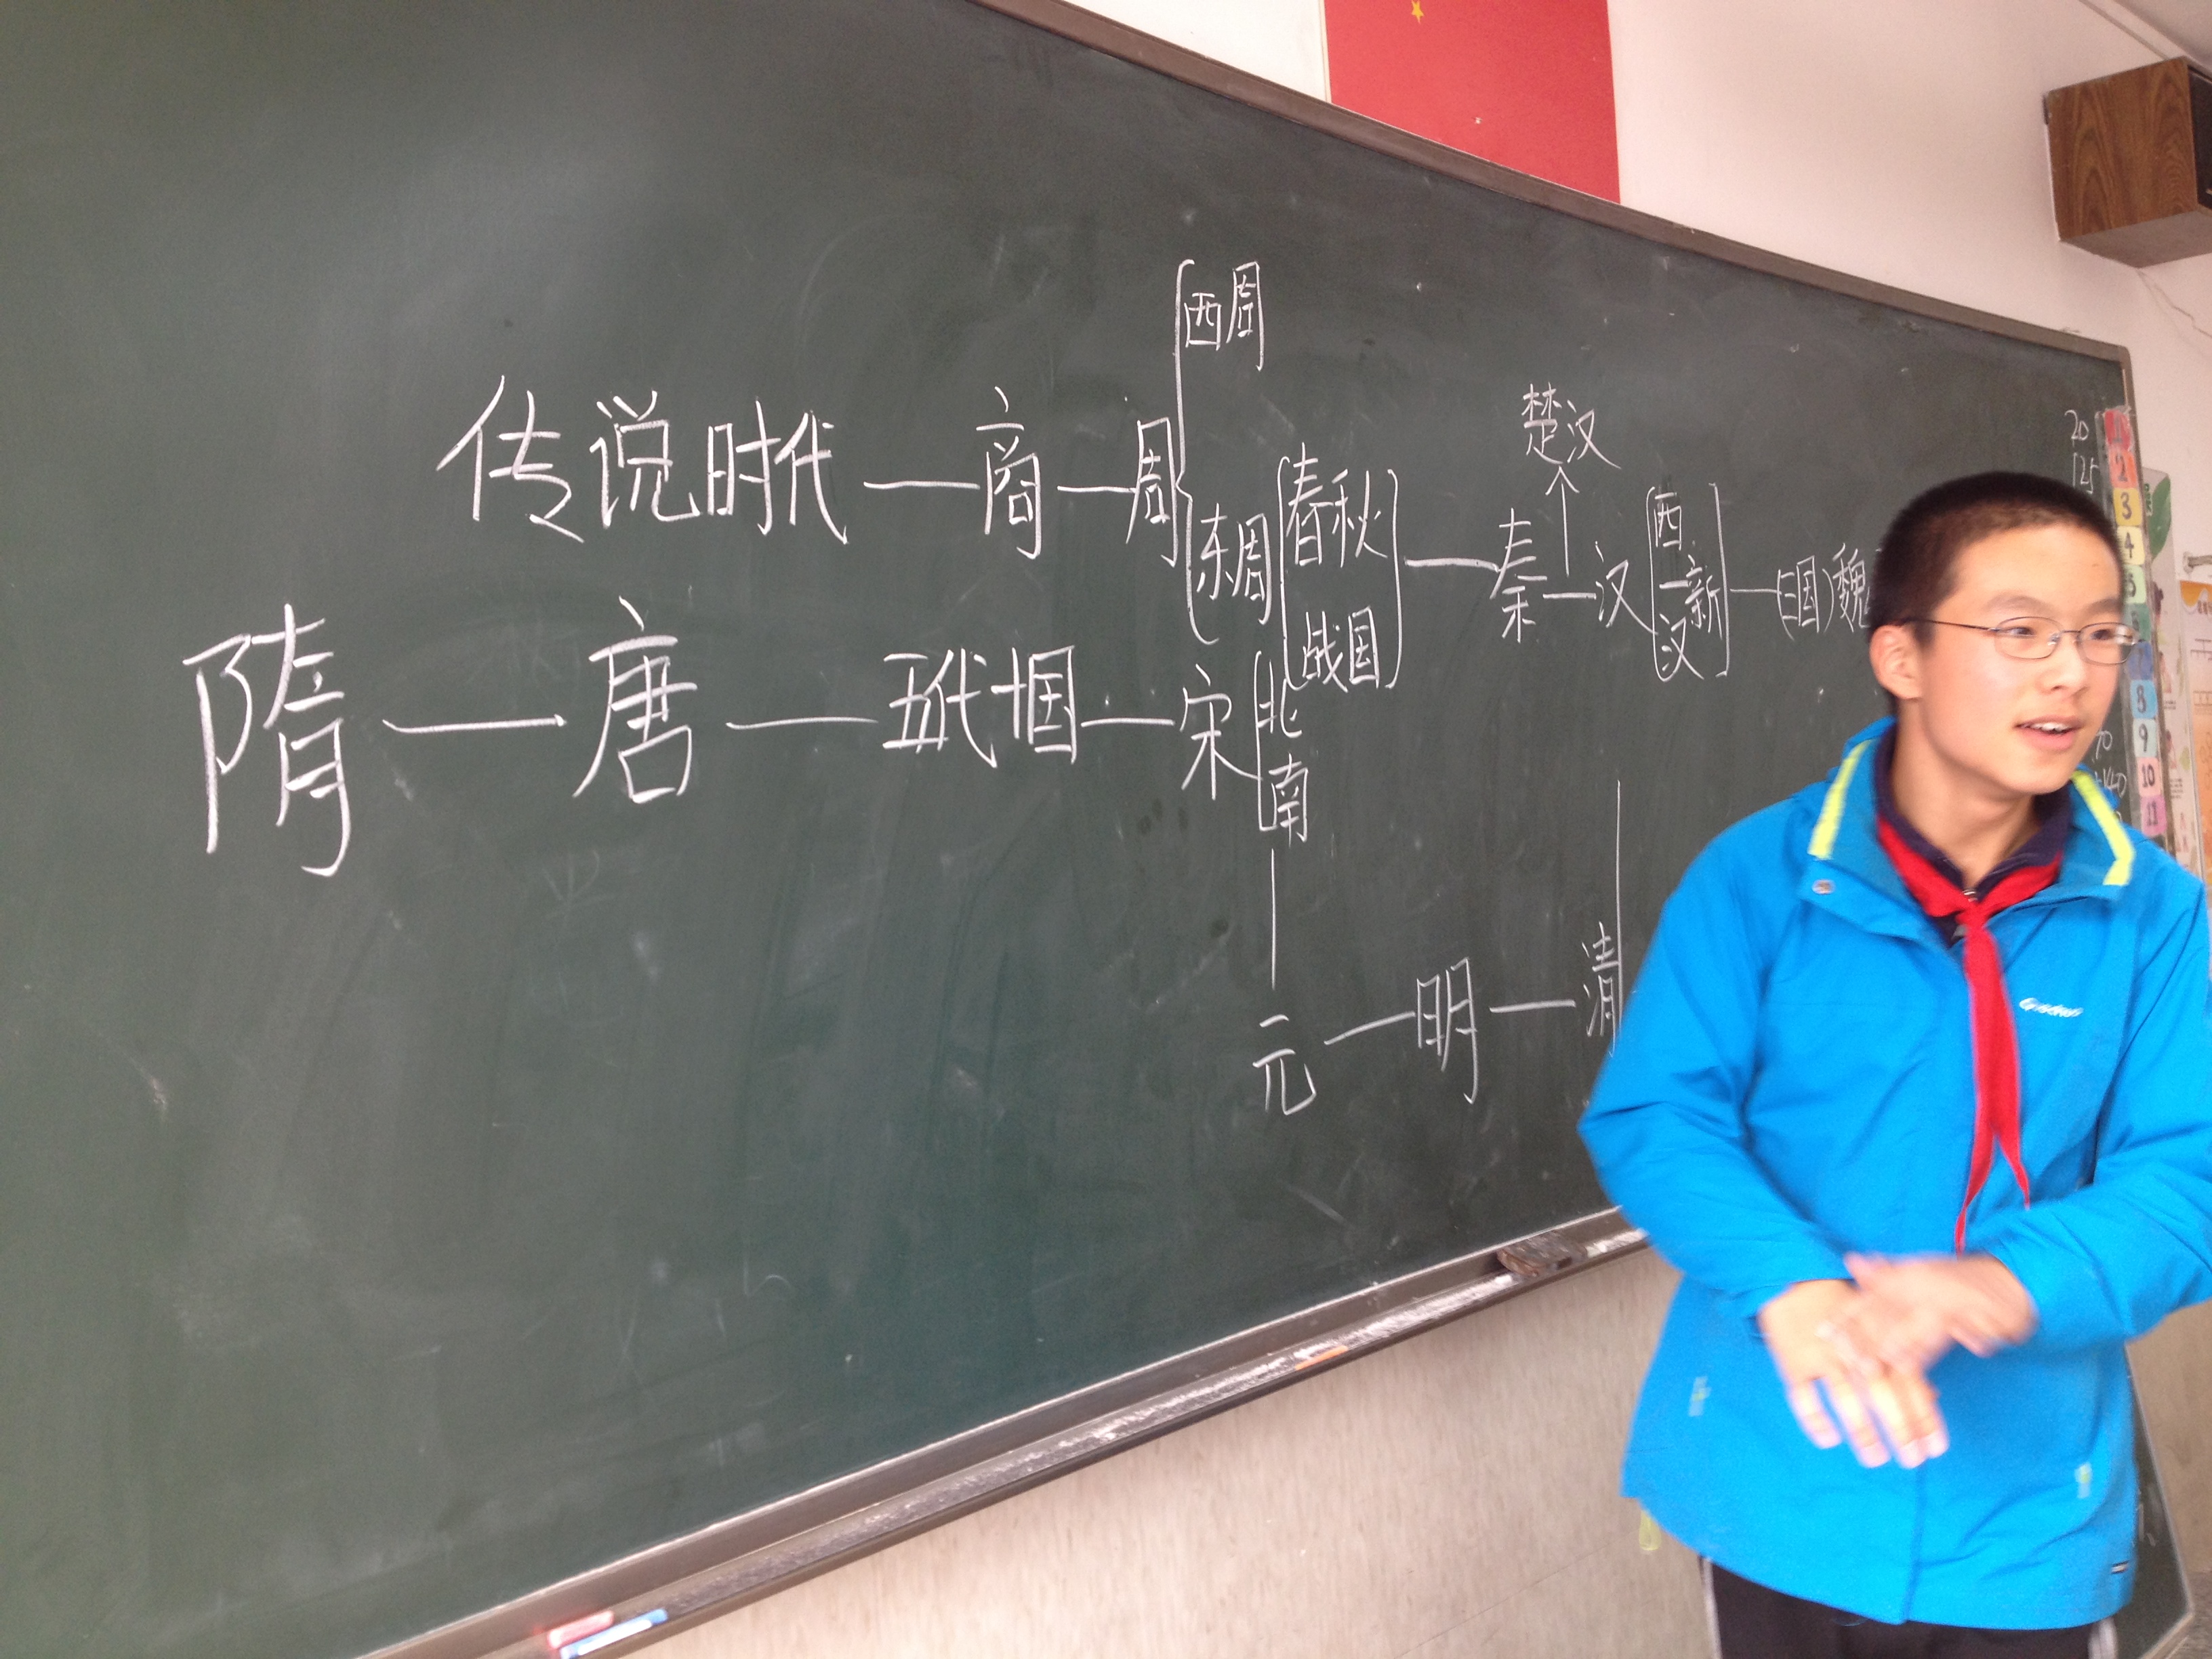 西周
楚汉
传说时代—商—周 东周 春秋 战国—秦—汉 西 新 汉—(三国)魏
隋—唐—五代十国—宋 北 南
元—明—清
20
125
2
3
4
8
9
10
11